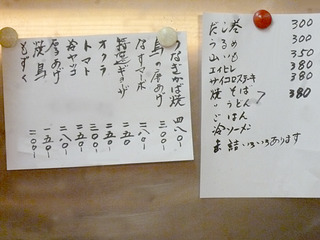 うなぎかば焼 四八〇-
鳥の厚あげ 三〇〇-
なすマーボ 二八〇
ギョーザ 二五〇
オクラ 二五〇-
トマト 二五〇-
冷ヤッコ 二八〇
厚あげ 二五〇-
焼鳥 一五〇-
もずく 二〇〇-
だし巻 300
うるめ 300
山いも 350
エイヒレ 380
サイコロステーキ 380
焼そば 380
〃うどん
ごはん
冷ソーメン
缶詰いろいろあります